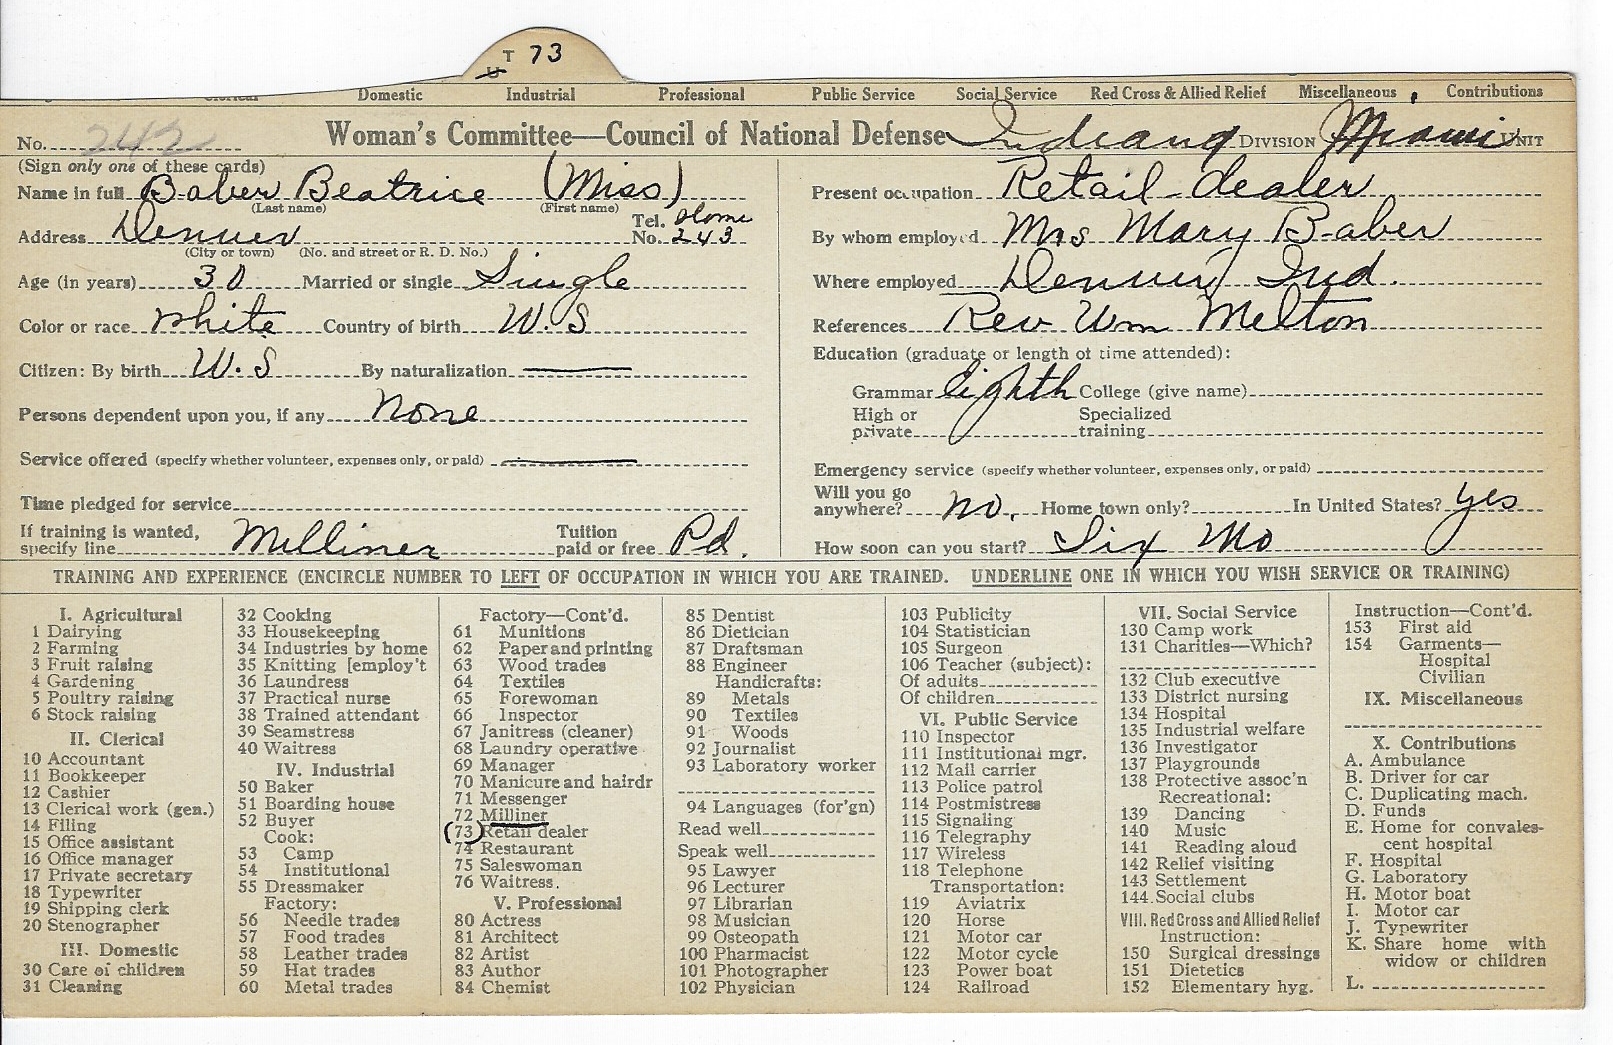 T 73
U
Clerical Domestic Industrial Professional Public Service Social Service Red Cross & Allied Relief Miscellaneous Contributions
No. 242 Woman's Committee—Council of National Defense Indiana DIVISION Miami UNIT
(Sign only one of these cards)
Name in full Baber Beatrice (Miss)
(Last name) (First name)
Address Denver Tel. No. Home 243
(City or town) (No. and street or R. D. No.)
Age (in years) 30 Married or single Single
Color or race White Country of birth U.S
Citizen: By birth U.S By naturalization
Persons dependent upon you, if any None
Service offered (specify whether volunteer, expenses only, or paid)
Time pledged for service
If training is wanted, specify line Milliner Tuition paid or free Pd.
Present occupation Retail dealer
By whom employed Mrs Mary Baber
Where employed Denver Ind.
References Rev Wm Melton
Education (graduate or length of time attended):
Grammar Eighth College (give name)
High or private Specialized training
Emergency service (specify whether volunteer, expenses only, or paid)
Will you go anywhere? no. Home town only? In United States? yes
How soon can you start? Six Mo
TRAINING AND EXPERIENCE (ENCIRCLE NUMBER TO LEFT OF OCCUPATION IN WHICH YOU ARE TRAINED. UNDERLINE ONE IN WHICH YOU WISH SERVICE OR TRAINING)
I. Agricultural
1 Dairying
2 Farming
3 Fruit raising
4 Gardening
5 Poultry raising
6 Stock raising
II. Clerical
10 Accountant
11 Bookkeeper
12 Cashier
13 Clerical work (gen.)
14 Filing
15 Office assistant
16 Office manager
17 Private secretary
18 Typewriter
19 Shipping clerk
20 Stenographer
III. Domestic
30 Care of children
31 Cleaning
32 Cooking
33 Housekeeping
34 Industries by home
35 Knitting [employ't
36 Laundress
37 Practical nurse
38 Trained attendant
39 Seamstress
40 Waitress
IV. Industrial
50 Baker
51 Boarding house
52 Buyer
Cook:
53 Camp
54 Institutional
55 Dressmaker
Factory:
56 Needle trades
57 Food trades
58 Leather trades
59 Hat trades
60 Metal trades
Factory—Cont'd.
61 Munitions
62 Paper and printing
63 Wood trades
64 Textiles
65 Forewoman
66 Inspector
67 Janitress (cleaner)
68 Laundry operative
69 Manager
70 Manicure and hairdr
71 Messenger
72 Milliner
(73) Retail dealer
74 Restaurant
75 Saleswoman
76 Waitress.
V. Professional
80 Actress
81 Architect
82 Artist
83 Author
84 Chemist
85 Dentist
86 Dietician
87 Draftsman
88 Engineer
Handicrafts:
89 Metals
90 Textiles
91 Woods
92 Journalist
93 Laboratory worker
94 Languages (for'gn)
Read well
Speak well
95 Lawyer
96 Lecturer
97 Librarian
98 Musician
99 Osteopath
100 Pharmacist
101 Photographer
102 Physician
103 Publicity
104 Statistician
105 Surgeon
106 Teacher (subject):
Of adults
Of children
VI. Public Service
110 Inspector
111 Institutional mgr.
112 Mail carrier
113 Police patrol
114 Postmistress
115 Signaling
116 Telegraphy
117 Wireless
118 Telephone
Transportation:
119 Aviatrix
120 Horse
121 Motor car
122 Motor cycle
123 Power boat
124 Railroad
VII. Social Service
130 Camp work
131 Charities—Which?
132 Club executive
133 District nursing
134 Hospital
135 Industrial welfare
136 Investigator
137 Playgrounds
138 Protective assoc'n
Recreational:
139 Dancing
140 Music
141 Reading aloud
142 Relief visiting
143 Settlement
144 Social clubs
VIII. Red Cross and Allied Relief
Instruction:
150 Surgical dressings
151 Dietetics
152 Elementary hyg.
Instruction—Cont'd.
153 First aid
154 Garments—
Hospital
Civilian
IX. Miscellaneous
X. Contributions
A. Ambulance
B. Driver for car
C. Duplicating mach.
D. Funds
E. Home for convales-
cent hospital
F. Hospital
G. Laboratory
H. Motor boat
I. Motor car
J. Typewriter
K. Share home with
widow or children
L.